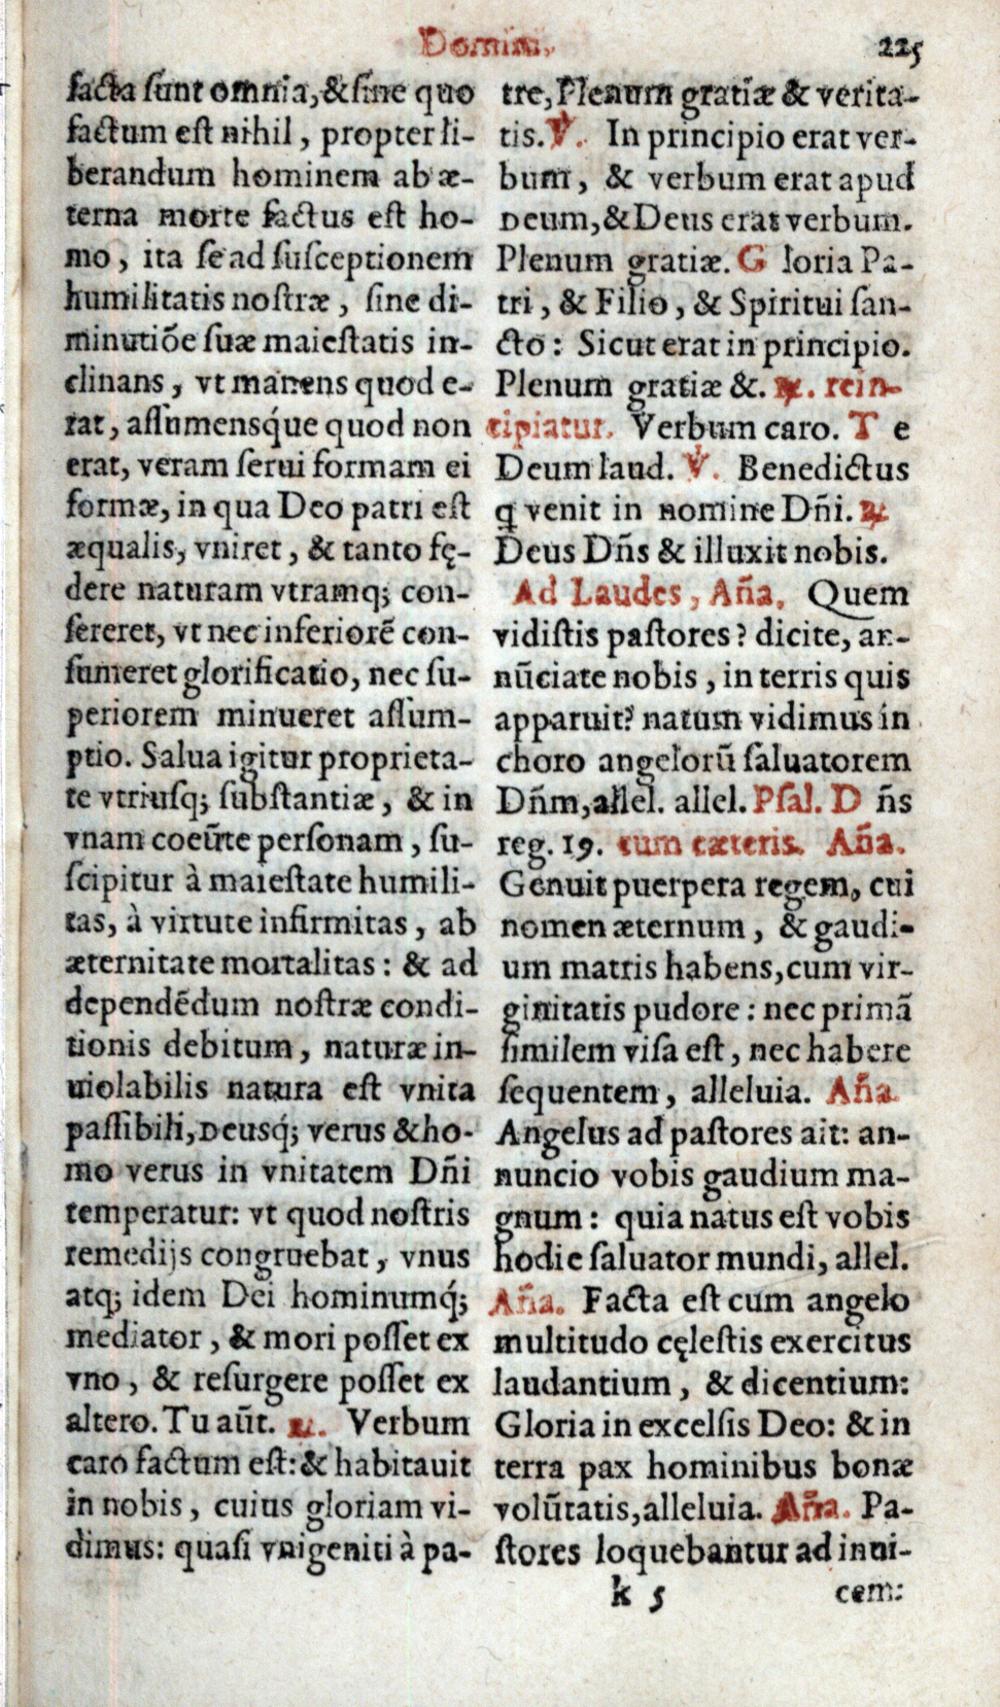 Domini, 225
facta sunt omnia, & sine quo
factum est nihil, propter li-
berandum hominem ab æ-
terna morte factus est ho-
mo, ita se ad susceptionem
humilitatis nostræ, sine di-
minutiõe suæ maiestatis in-
clinans, vt manens quod e-
rat, assumensq́ue quod non
erat, veram serui formam ei
formæ, in qua Deo patri est
æqualis, vniret, & tanto fę-
dere naturam vtramq; con-
sereret, vt nec inferiorẽ con-
sumeret glorificatio, nec su-
periorem minueret assum-
ptio. Salua igitur proprieta-
te vtriusq; substantiæ, & in
vnam coeũte personam, su-
scipitur à maiestate humili-
tas, à virtute infirmitas, ab
æternitate mortalitas: & ad
dependẽdum nostræ condi-
tionis debitum, naturæ in-
uiolabilis natura est vnita
passibili, Deusq́; verus & ho-
mo verus in vnitatem Dñi
temperatur: vt quod nostris
remedijs congruebat, vnus
atq; idem Dei hominumq́;
mediator, & mori posset ex
vno, & resurgere posset ex
altero. Tu aũt. ℟. Verbum
caro factum est: & habitauit
in nobis, cuius gloriam vi-
dimus: quasi vnigeniti à pa-
tre, Plenum gratiæ & verita-
tis. ℣. In principio erat ver-
bum, & verbum erat apud
Deum, & Deus erat verbum.
Plenum gratiæ. G loria Pa-
tri, & Filio, & Spiritui san-
cto: Sicut erat in principio.
Plenum gratiæ &. ℟. rein-
cipiatur. Verbum caro. T e
Deum laud. ℣. Benedictus
q venit in nomine Dñi. ℟
Deus Dñs & illuxit nobis.
Ad Laudes, Aña. Quem
vidistis pastores? dicite, an-
nũciate nobis, in terris quis
apparuit? natum vidimus in
choro angelorũ saluatorem
Dñm, allel. allel. Psal. D ñs
reg. 19. cum cæteris. Aña.
Genuit puerpera regem, cui
nomen æternum, & gaudi-
um matris habens, cum vir-
ginitatis pudore: nec primã
similem visa est, nec habere
sequentem, alleluia. Aña
Angelus ad pastores ait: an-
nuncio vobis gaudium ma-
gnum: quia natus est vobis
hodie saluator mundi, allel.
Aña. Facta est cum angelo
multitudo cęlestis exercitus
laudantium, & dicentium:
Gloria in excelsis Deo: & in
terra pax hominibus bonæ
volũtatis, alleluia. Aña. Pa-
stores loquebantur ad inui-
k 5 cem: